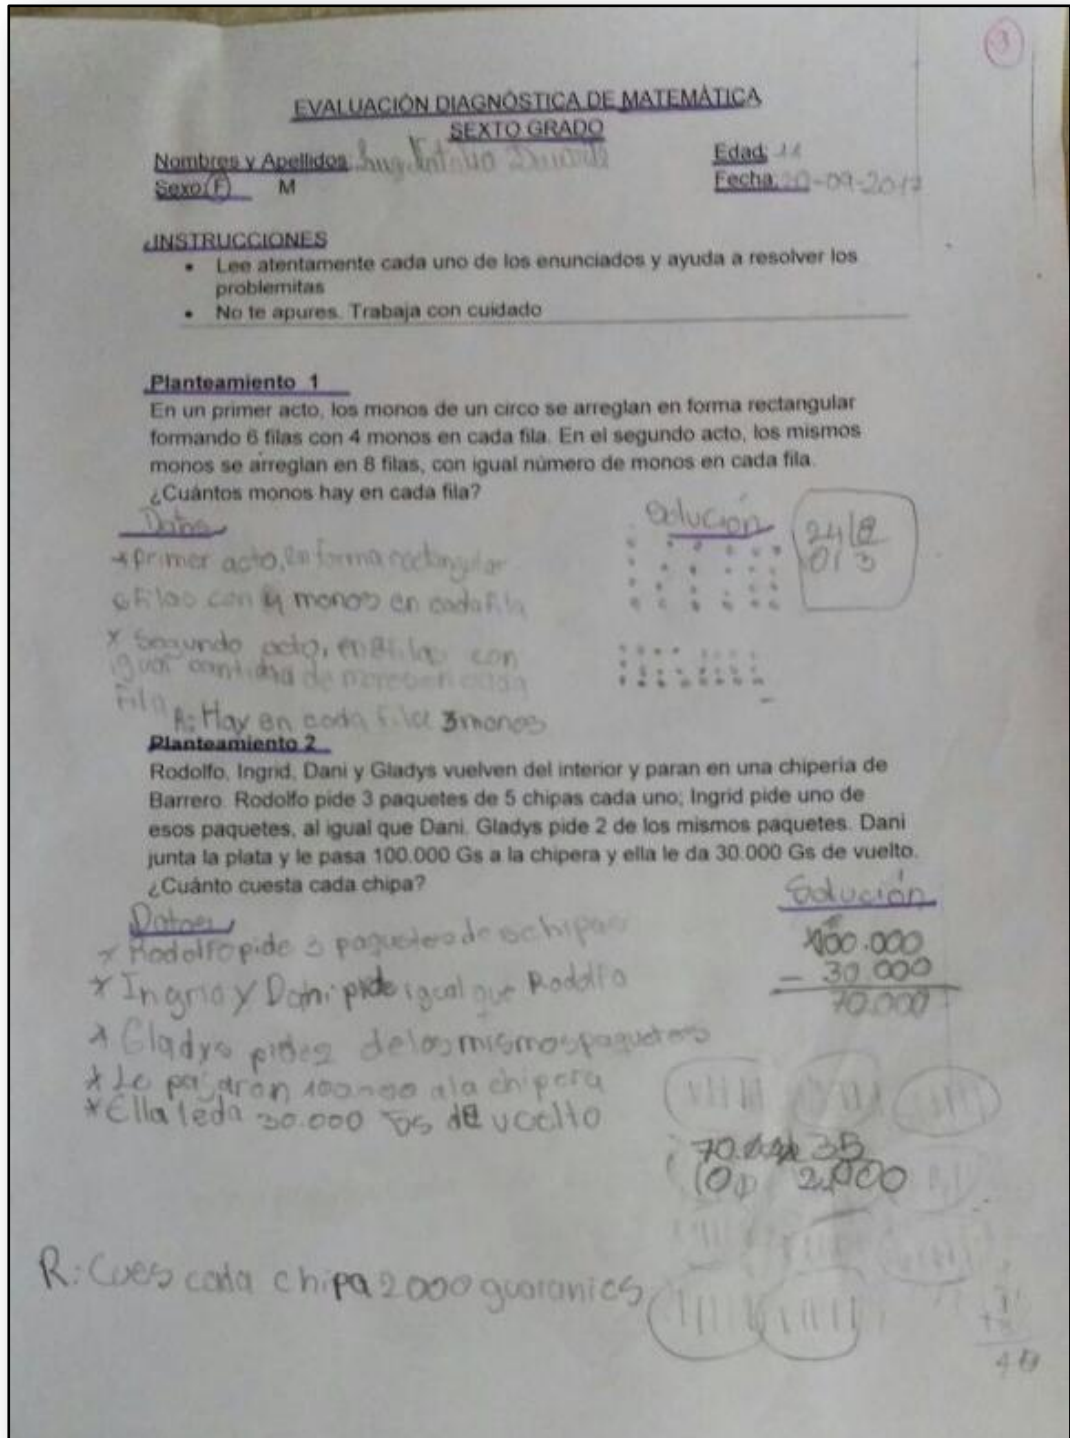 3
EVALUACIÓN DIAGNÓSTICA DE MATEMÁTICA
SEXTO GRADO
Nombres y Apellidos:
Edad: 11
Sexo F M
Fecha: 20-09-2017
INSTRUCCIONES
• Lee atentamente cada uno de los enunciados y ayuda a resolver los
problemitas
• No te apures. Trabaja con cuidado
Planteamiento 1
En un primer acto, los monos de un circo se arreglan en forma rectangular
formando 6 filas con 4 monos en cada fila. En el segundo acto, los mismos
monos se arreglan en 8 filas, con igual número de monos en cada fila.
¿Cuántos monos hay en cada fila?
Datos
Solución
24 8
0 3
* primer acto, en forma rectangular
6 filas con 4 monos en cada fila
* Segundo acto, en 8 filas con
igual cantidad de monos en cada
fila
R: Hay en cada fila 3 monos
Planteamiento 2
Rodolfo, Ingrid, Dani y Gladys vuelven del interior y paran en una chipería de
Barrero. Rodolfo pide 3 paquetes de 5 chipas cada uno; Ingrid pide uno de
esos paquetes, al igual que Dani. Gladys pide 2 de los mismos paquetes. Dani
junta la plata y le pasa 100.000 Gs a la chipera y ella le da 30.000 Gs de vuelto.
¿Cuánto cuesta cada chipa?
Datos
Solución
* Rodolfo pide 3 paquetes de 5 chipas
100.000
- 30.000
70.000
* Ingrid y Dani pide igual que Rodolfo
* Gladys pide 2 de los mismos paquetes
* Le pagaron 100.000 a la chipera
* Ella le da 30.000 Gs de vuelto
35
2.000
R: Cues cada chipa 2000 guaranies